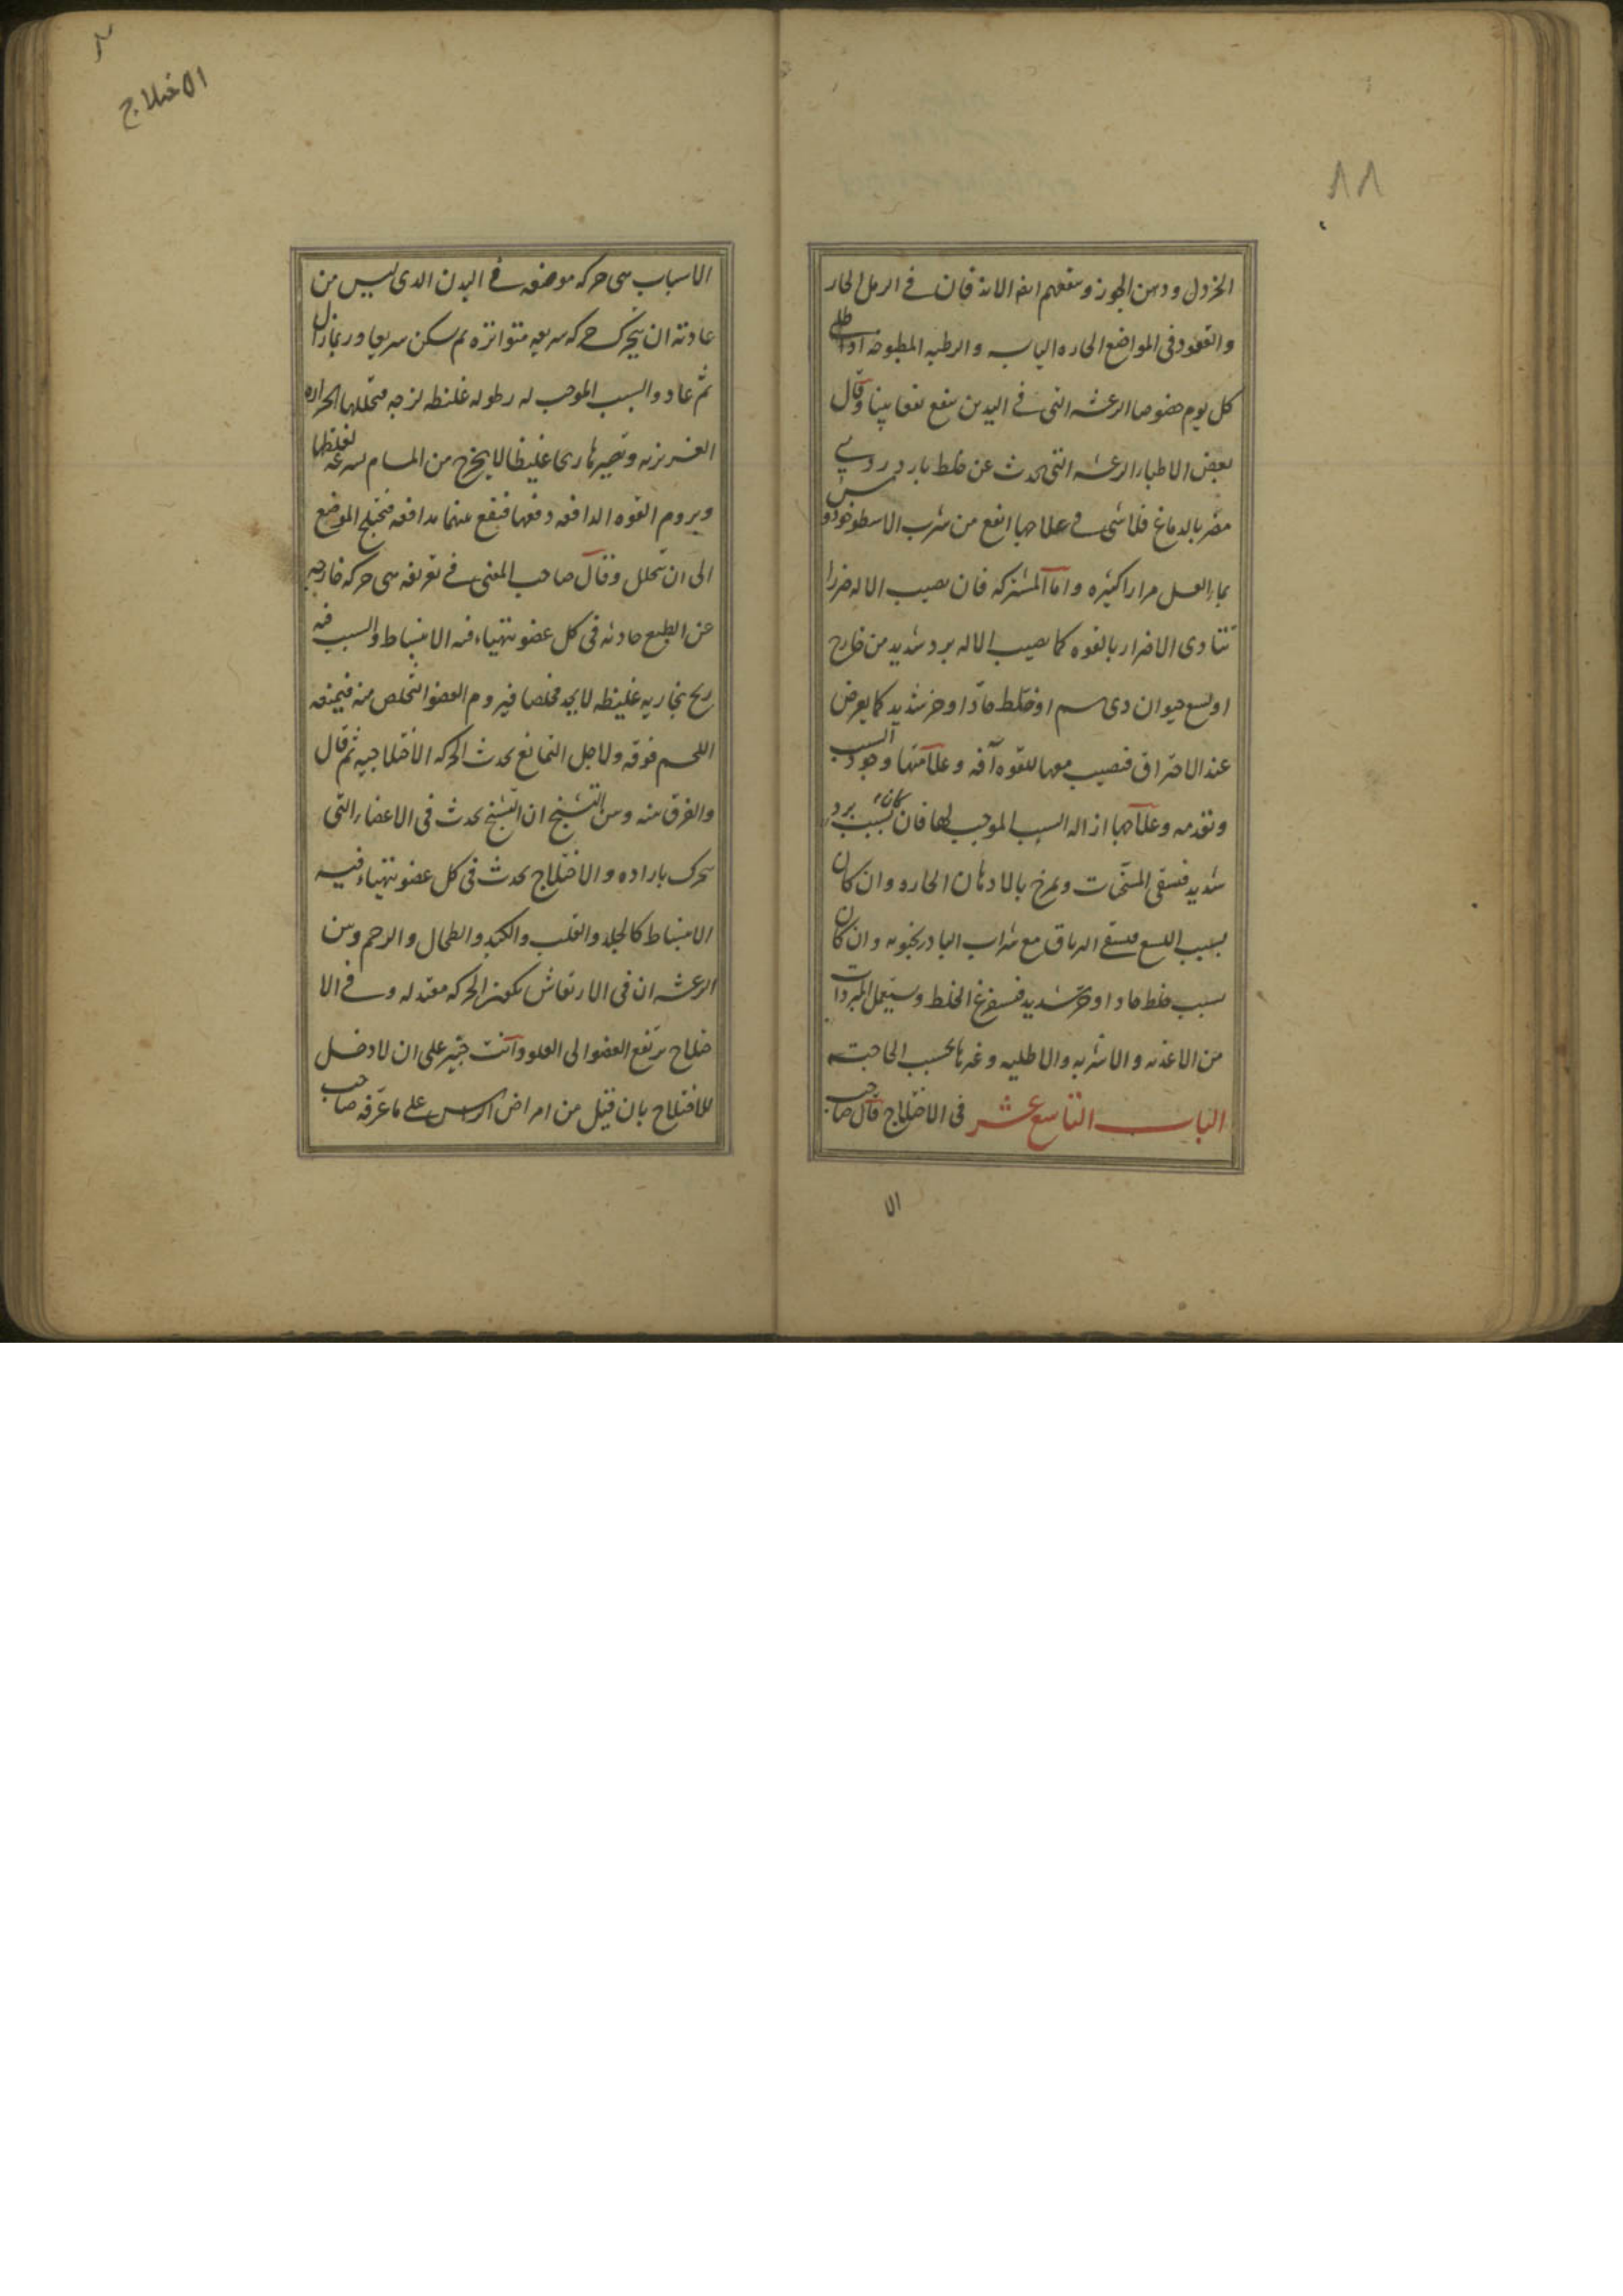 ٨٨
الخردل ودهن الجوز وينفعهم ايضا الاندفان في الرمل الحار
والقعود في المواضع الحاره اليابسه والرطبه المطبوخه اذا طلى
كل يوم خصوصا الرعشه التى في اليدين ينفع نفعا بينا وقال
بعض الاطباء الرعشه التى تحدث عن خلط بارد ردى
مضر بالدماغ فلا شى في علاجها انفع من شرب الاسطوخودوس
بماء العسل مرارا كثيره واما المشتركه فان يصيب الاله ضررا
تتادى الاضرار بالقوه كما يصيب الاله برد شديد من خارج
او لسع حيوان ذى سم او خلط حاد او حر شديد كما يعرض
عند الاحتراق فتصيب معها للقوه آفه وعلامتها وجود السبب
وتقدمه وعلاجها ازاله السبب الموجب لها فان كان بسبب برد
شديد فيسقى المسخنات ويمرخ بالادهان الحاره وان كان
بسبب اللسع فيسقى الترياق مع شراب البادرنجبويه وان كان
بسبب خلط حاد او حر شديد فيستفرغ الخلط ويستعمل المبردات
من الاغذيه والاشربه والاطليه وغيرها بحسب الحاجته
الباب التاسع عشر في الاختلاج قال صاحب
الا
الاختلاج
الاسباب هى حركه موضعه في البدن الذى ليس من
عادته ان يتحرك حركه سريعه متواتره ثم سكن سريعا وربما زال
ثم عاد والسبب الموجب له رطوبه غليظه لزجه فتحللها الحراره
الغريزيه وتصيرها ريحا غليظا لا يخرج من المسام بسرعه لغلظها
ويروم القوه الدافعه دفعها فيقع بينهما مدافعه فيختلج الموضع
الى ان تتحلل وقال صاحب المغنى في تعريفه هى حركه خارجه
عن الطبع حادثه في كل عضو يتهياء فيه الانبساط والسبب فيه
ريح بخاريه غليظه لا يجد مخلصا فيروم العضو التخلص منه فيمنعه
اللحم فوقه ولاجل التمانع يحدث الحركه الاختلاجيه ثم قال
والفرق بينه وبين التشنج ان التشنج يحدث في الاعضاء التى
تتحرك باراده والاختلاج يحدث في كل عضو يتهياء فيه
الانبساط كالجلد والقلب والكبد والطحال والرحم وبين
الرعشه ان في الارتعاش تكون الحركه معتدله وفي الا
ختلاج يرتفع العضو الى العلو وانت خبير على ان لا دخل
للاختلاج بان قيل من امراض الراس على ما عرفه صاحب